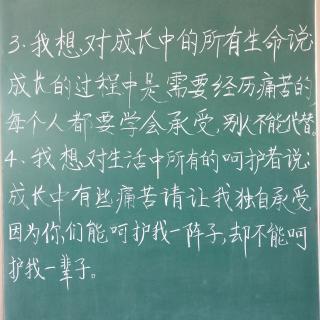 3.我想对成长中的所有生命说:
成长的过程中是需要经历痛苦的,
每个人都要学会承受,别人不能代替。
4、我想对生活中所有的呵护者说:
成长中有些痛苦请让我独自承受
因为你们能呵护我一阵子,却不能呵
护我一辈子。